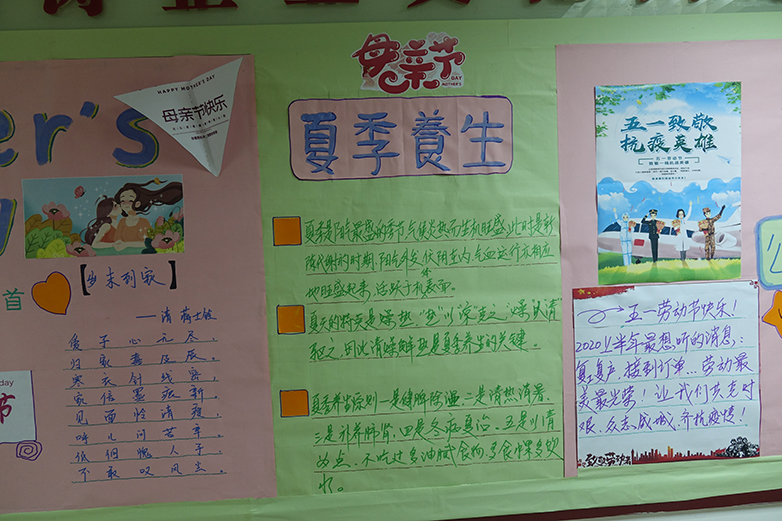 er's
HAPPY MOTHER'S DAY
母亲节快乐
【岁末到家】
首
——清 蒋士铨
爱子心无尽，
归家喜及辰。
寒衣针线密，
家信墨痕新。
见面怜清瘦，
呼儿问苦辛。
低徊愧人子，
不敢叹风尘。
day
节
母亲节
MOTHER'S DAY
夏季養生
夏季是阳气最盛的季节,气候炎热而生机旺盛,此时是新
陈代谢的时期,阳气外发,伏阴在内,气血运行亦相应
地旺盛起来,活跃于机体表面。
夏天的特点是燥热,"热"以"凉"克之,"燥"以清
驱之,因此清燥解热是夏季养生的关键。
夏季养生原则:一是健脾除湿 二是清热消暑,
三是补养肺肾,四是冬病夏治。五是以清
不吃过多油腻食物,多食水果多饮
水。
五一致敬
抗疫英雄
五一劳动节快乐!
2020上半年最想听的消息:
复产,接到订单...劳动最
美最光荣!让我们共克时
艰,众志成城,齐抗疫情!
致敬劳动者